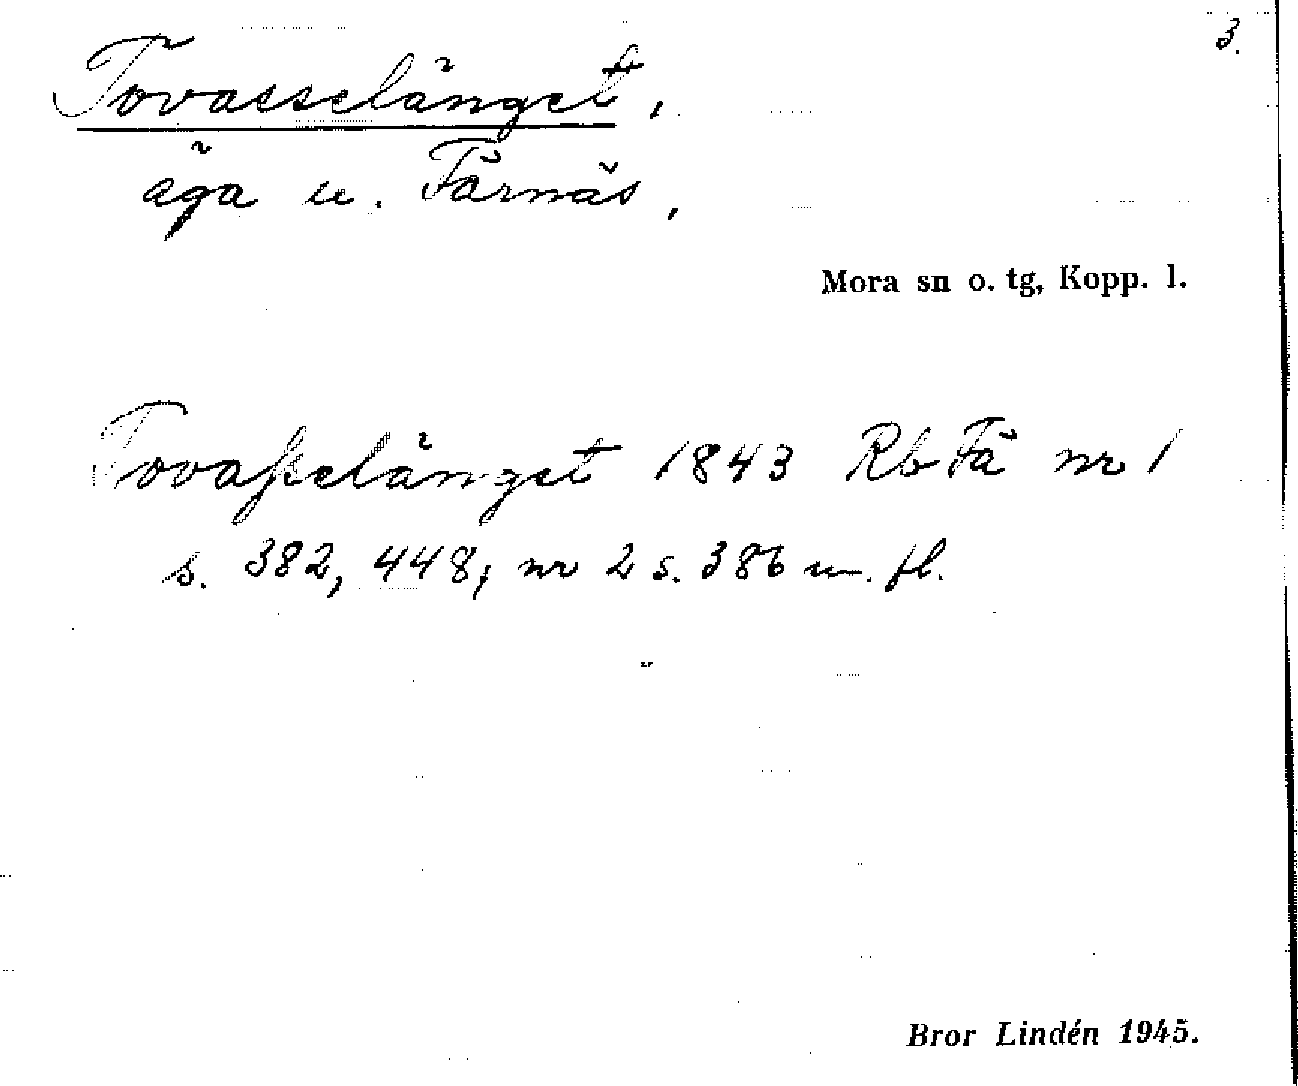 3.
Tovasselänget,
äga u. Färnäs,
Mora sn o. tg, Kopp. l.
Tovaſselänget 1843 Rb Fä nr 1
s. 382, 448; nr 2 s. 386 m. fl.
Bror Lindén 1945.